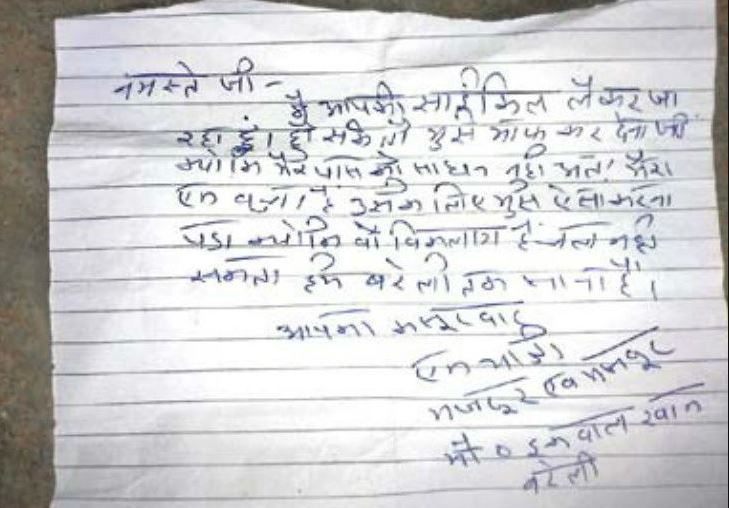 नमस्ते जी -
मै आपकी साईकिल लेकर जा
रहा हुं। हो सके तो मुझे माफ कर देना जी
क्योकि मेरे पास को साधन नही अतः मेरा
एक बच्चा है उसके लिए मुझे ऐसा करना
पडा क्योकि वो विकलांग है चल नही
सकता हमे बरेली तक जाना है।
आपका कसूरवार
एक यात्री
मजदूर एव मजबूर
मौ० इकबाल खान
बरेली